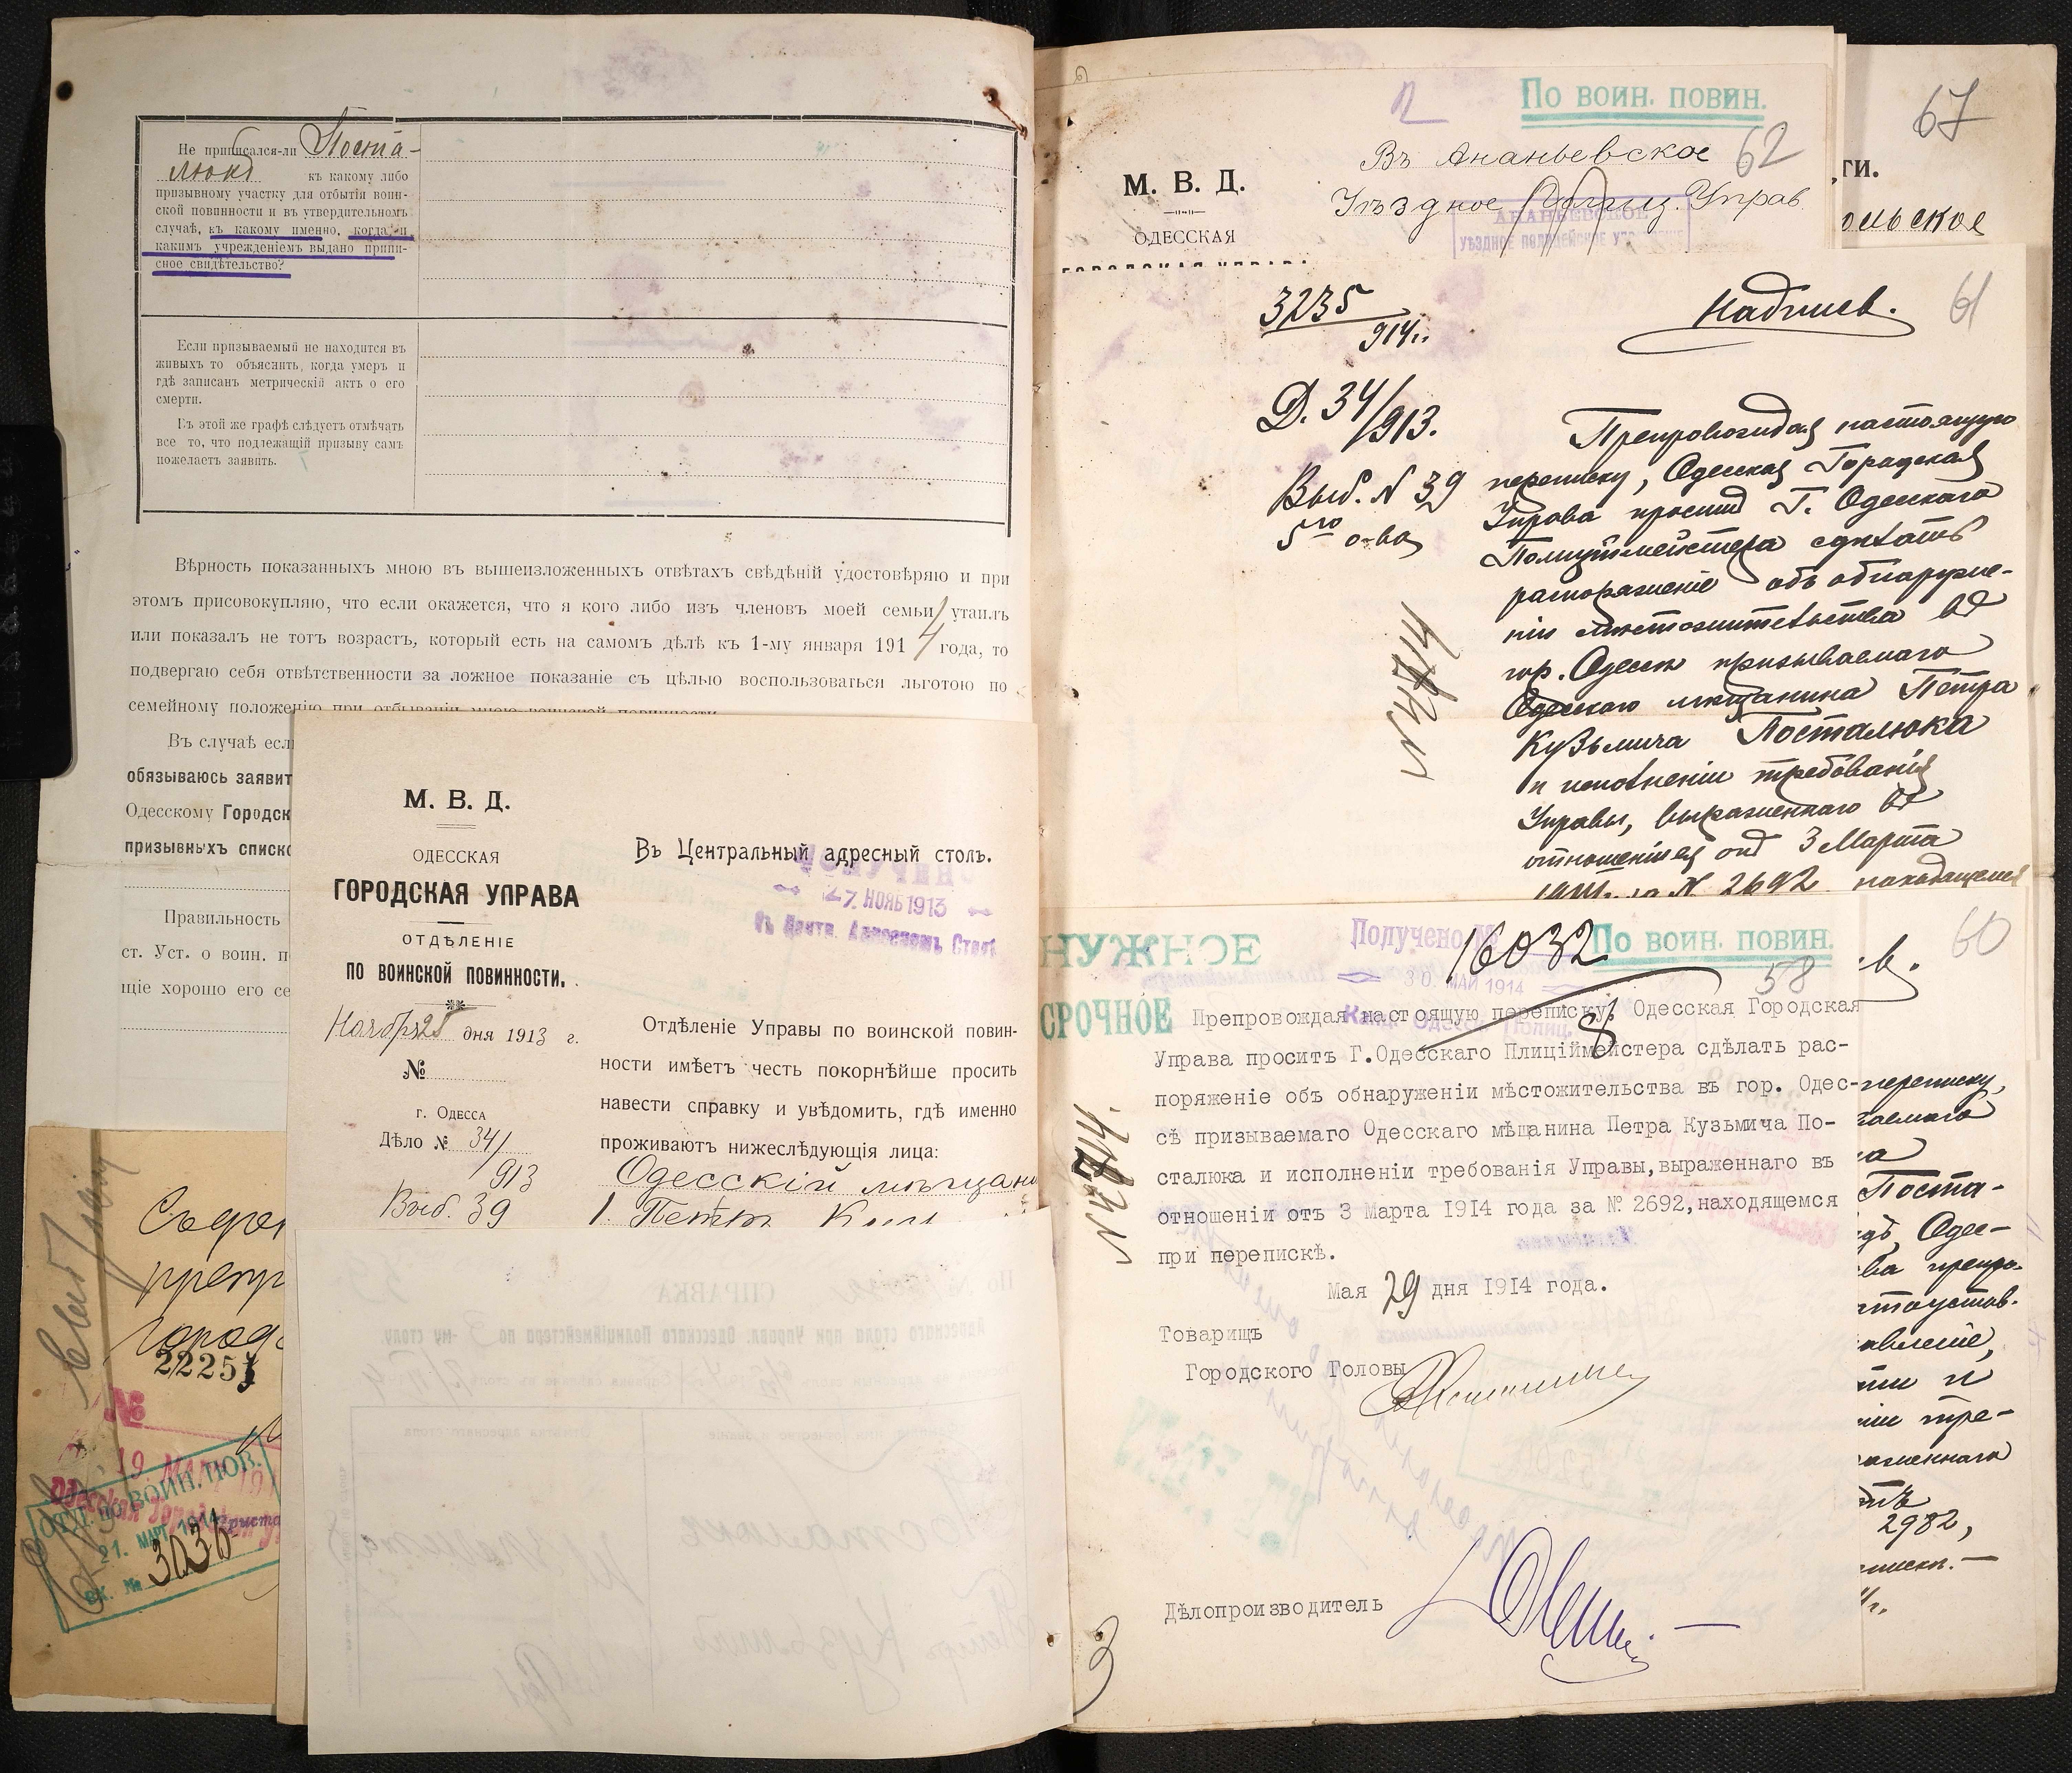 Не приписался-ли Поста-
люкъ къ какому либо
призывному участку для отбытія воин-
ской повинности и въ утвердительномъ
случаѣ, къ какому именно, когда и
какимъ учрежденіемъ выдано припи-
сное свидѣтельство?
Если призываемый не находится въ
живыхъ то объяснить, когда умеръ и
гдѣ записанъ метрическій актъ о его
смерти.
Въ этой же графѣ слѣдуетъ отмѣчать
все то, что подлежащій призыву самъ
пожелаетъ заявить.
Вѣрность показанныхъ мною въ вышеизложенныхъ отвѣтахъ свѣдѣній удостовѣряю и при
этомъ присовокупляю, что если окажется, что я кого либо изъ членовъ моей семьи утаилъ
или показалъ не тотъ возрастъ, который есть на самомъ дѣлѣ къ 1-му января 1914 года, то
подвергаю себя отвѣтственности за ложное показаніе съ цѣлью воспользоваться льготою по
семейному положенію при отбываніи мною воинской повинности
Въ случаѣ если
обязываюсь заявит
Одесскому Городск
призывныхъ списко
Правильность
ст. Уст. о воин. п
щіе хорошо его се
М. В. Д.
ОДЕССКАЯ
ГОРОДСКАЯ УПРАВА
ОТДѢЛЕНІЕ
ПО ВОИНСКОЙ ПОВИННОСТИ.
Ноября 25 дня 1913 г.
№
г. Одесса
Дѣло № 34/
913
Выб. 39
Въ Центральный адресный столъ.
27. НОЯБ 1913
Въ Центр. Адресномъ Столѣ
Отдѣленіе Управы по воинской повин-
ности имѣетъ честь покорнѣйше просить
навести справку и увѣдомить, гдѣ именно
проживаютъ нижеслѣдующія лица:
Одесскій мѣщани
1. Петръ
22251
№
19. МАР
ОТД. ПО ВОИН. ПОВ.
21. МАРТ. 1914
ВХ. №
3036
СПРАВКА
По воин. повин.
62
Въ Ананьевское
Уѣздное Полиц. Управ
АНАНЬЕВСКОЕ
УѢЗДНОЕ ПОЛИЦЕЙСКОЕ
М. В. Д.
ОДЕССКАЯ
ГОРОДСКАЯ УПРАВА
67
ти.
ольское
3235
914 г.
Надпись.
61
Д. 34/913.
Выб. N 39
5го о-ва
N 4714
Препровождая настоящую
переписку, Одесская Городская
Управа проситъ Г. Одесскаго
Полиціймейстера сдѣлать
распоряженіе объ обнаруже-
ніи мѣстожительства въ
гор. Одессѣ призываемаго
Одесскаго мѣщанина Петра
Кузьмича Посталюка
и исполненіи требованія
Управы, выраженнаго въ
отношеніи отъ 3 Марта
1914 г. за N 2692 находящемся
НУЖНОЕ
СРОЧНОЕ
Получено №
16032
30. МАЙ 1914
По воин. повин.
58
60
Препровождая настоящую переписку, Одесская Городская
Управа проситъ Г.Одесскаго Плиціймейстера сдѣлать рас-
поряженіе объ обнаруженіи мѣстожительства въ гор. Одес-
сѣ призываемаго Одесскаго мѣщанина Петра Кузьмича По-
сталюка и исполненіи требованія Управы,выраженнаго въ
отношеніи отъ 3 Марта 1914 года за № 2692,находящемся
при перепискѣ.
Мая 29 дня 1914 года.
Товарищъ
Городского Головы
Дѣлопроизводитель
переписку,
Поста-
Одес-
2982,